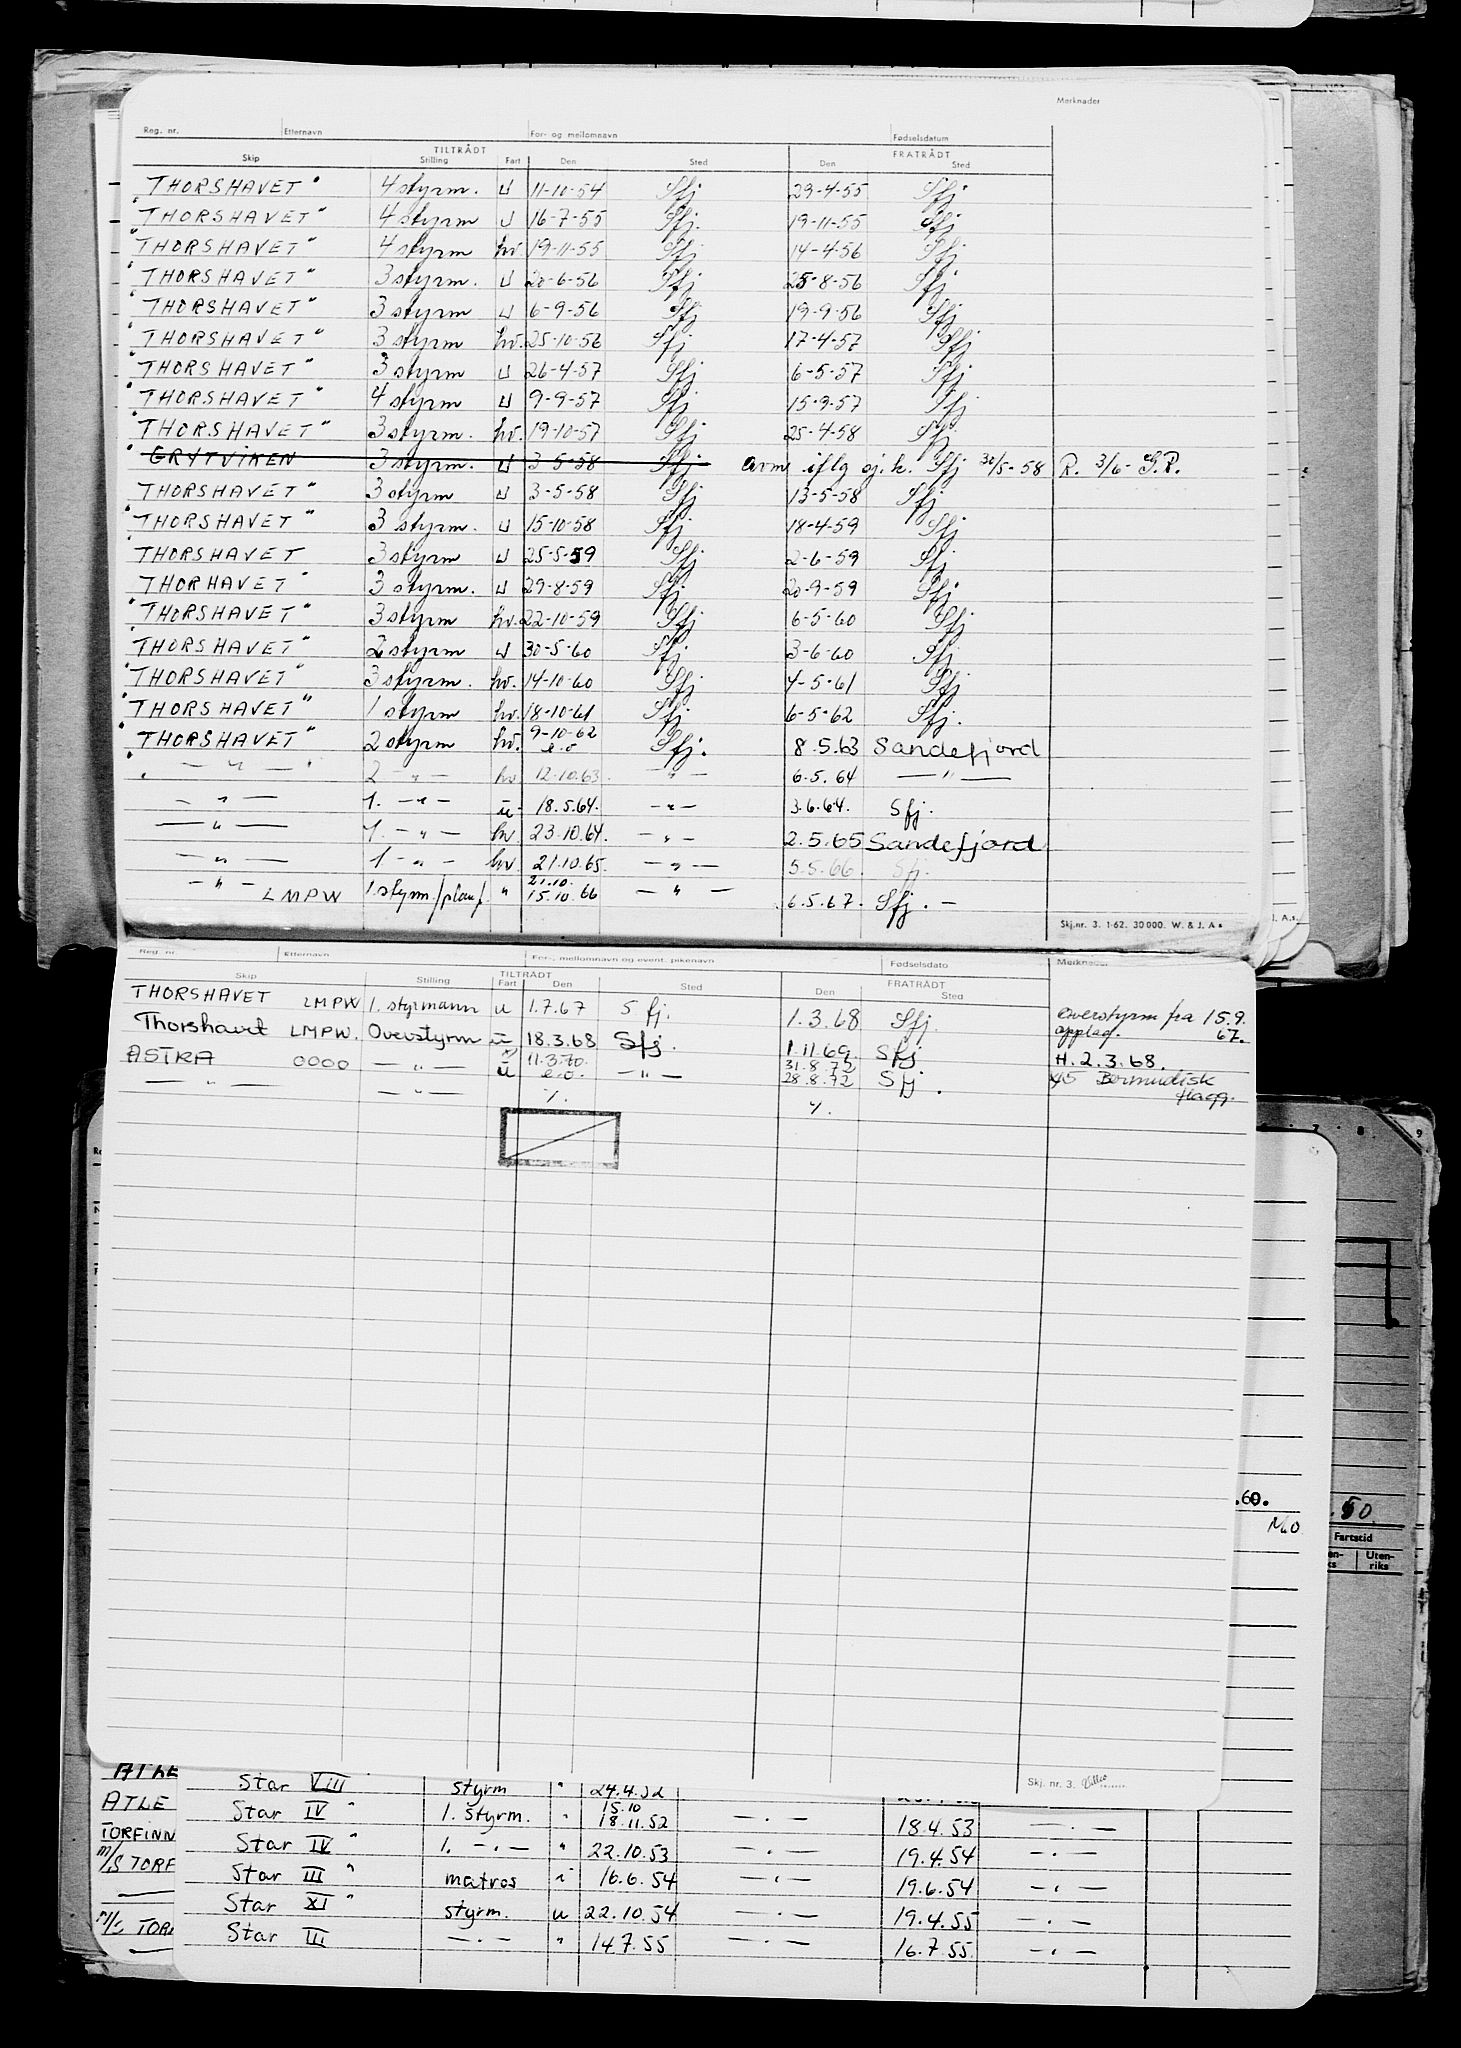 Merknader
Reg. nr. Etternavn For- og mellomnavn Fødselsdatum
TILTRÅDT FRATRÅDT
Skip Stilling Fart Den Sted Den Sted
THORSHAVET" 4 styrm. u 11-10-54 Sfj 29-4-55 Sfj
"THORSHAVET" 4 styrm u 16-7-55 Sfj. 19-11-55 Sfj
"THORSHAVET" 4 styrm hv. 19-11-55 Sfj 14-4-56 Sfj
"THORSHAVET" 3 styrm. u 20-6-56 Sfj 28-8-56 Sfj
"THORSHAVET" 3 styrm u 6-9-56 Sfj 19-9-56 Sfj
"THORSHAVET" 3 styrm hv. 25-10-56 Sfj 17-4-57 Sfj
"THORSHAVET" 3 styrm u 26-4-57 Sfj 6-5-57 Sfj
"THORSHAVET" 4 styrm u 9-9-57 Sfj 15-9-57 Sfj
"THORSHAVET" 3 styrm. hv. 19-10-57 Sfj 25-4-58 Sfj
"GRYTVIKEN 3 styrm. u 3-5-58 Sfj anm. iflg sj. k. Sfj 30/5-58 R. 3/6- G.R.
THORSHAVET" 3 styrm u 3-5-58 Sfj 13-5-58 Sfj
"THORSHAVET" 3 styrm. u 15-10-58 Sfj 18-4-59 Sfj
THORSHAVET 3 styrm u 25-5-59 Sfj 2-6-59 Sfj
THORHAVET" 3 styrm. u 29-8-59 Sfj 20-9-59 Sfj
"THORSHAVET" 3 styrm hv. 22-10-59 Sfj 6-5-60 Sfj
"THORSHAVET" 2 styrm u 30-5-60 Sfj 3-6-60 Sfj
"THORSHAVET" 3 styrm. hv. 14-10-60 Sfj 4-5-61 Sfj
"THORSHAVET" 1 styrm hv. 18-10-61 Sfj 6-5-62 Sfj.
"THORSHAVET" 2 styrm hv. 9-10-62 e.o Sfj. 8.5.63 Sandefjord
" — " — " 2 — " — hv 12.10.63. — " — 6.5.64 — " —
— " — 1. — " — u. 18.5.64. — " — 3.6.64. Sfj.
— " — 1. — " — hv 23.10.64. — " — 2.5.65 Sandefjord
— " — 1 — " — hv 21.10.65. — " — 5.5.66. Sfj.
— " — LMPW 1. styrm./planf. " 21.10. 15.10.66 — " — 6.5.67. Sfj. —
Skj.nr. 3. 1-62. 30 000. W. & J. A s
J. A.s.
Reg. nr. Etternavn For-, mellomnavn og event. pikenavn Fødselsdato Merknader
TILTRÅDT FRATRÅDT
Skip Stilling Fart Den Sted Den Sted
THORSHAVET LMPW 1. styrmann u 1.7.67 Sfj. 1.3.68 Sfj. Overstyrm fra 15.9.67.
opplag.
Thorshavet LMPW. Overstyrm u 18.3.68 Sfj. 1.11.69 Sfj H. 2.3.68.
ASTRA OOOO — " — u 11.3.70. e.o. — " — 31.8.72 28.8.72 Sfj. Bermudisk flagg.
— " — — " — %. %.
7 8 9
.60.
No
.50.
Fartstid
Uten-
riks
Skj. nr. 3.
ATLE Star VIII styrm " 24.4.52
ATLE Star IV " 1. styrm. " 15.10 18.11.52 — " — 18.4.53 — " —
TORFINN Star IV " 1. — " — " 22.10.53 19.4.54 — " —
M/S TORF Star III " matros i 16.6.54 — " — 19.6.54 — " —
Star XI " styrm. u 22.10.54 19.4.55 — " —
M/S TOR Star III — " — " 14.7.55 — " — 16.7.55 — " —